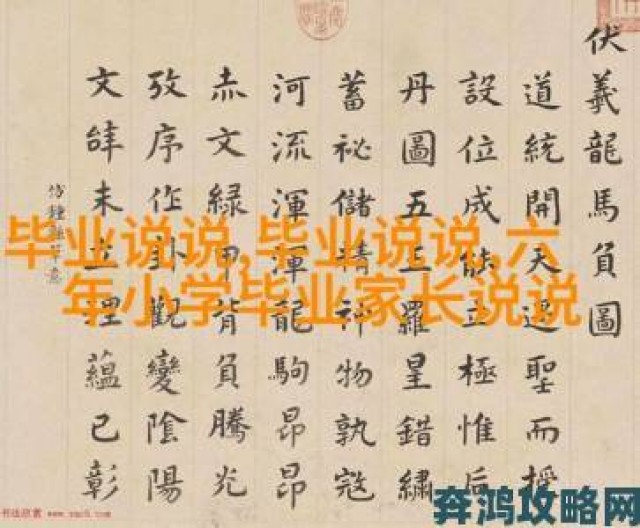 伏羲龍馬負圖
道統開天遐聖而授
設位成能立極惟后
丹圖五羅星錯繡
蓄祕儲精神物孰
河流渾渾龍駒昂昂
赤文綠甲背負騰光
攷序作卦觀變陰陽
文未立理蘊已彰
毕业说说,毕业说说,六
年小学毕业家长说说
书法欣赏
奔鸿攻略网